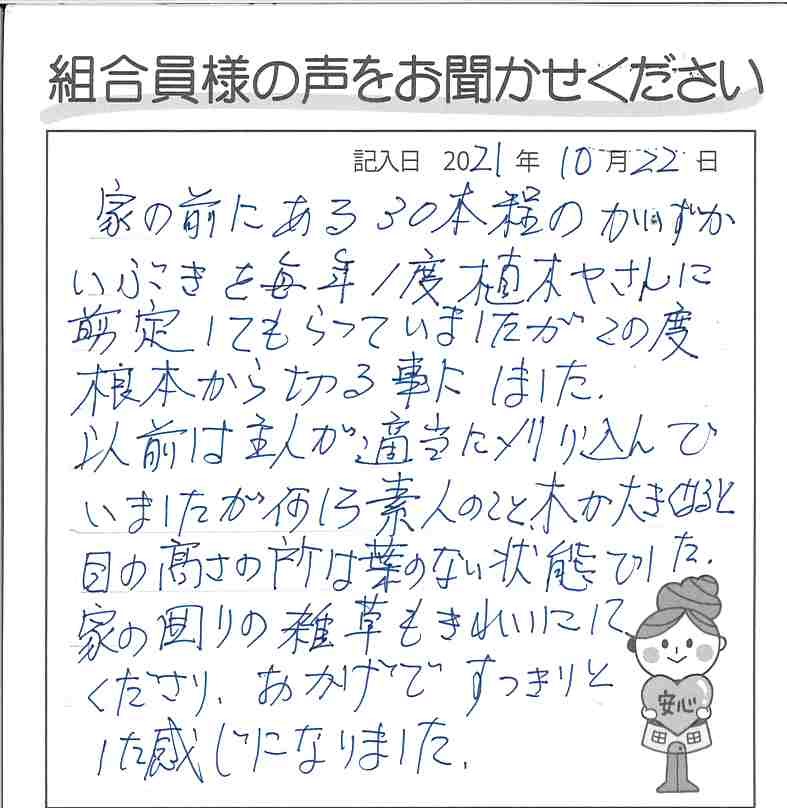 組合員様の声をお聞かせください
記入日 2021年 10月22日
家の前にある30本程のかいずか
いぶきを毎年1度植木ヤさんに
剪定してもらっていましたがこの度
根本から切る事にしました.
以前は主人が適当に刈り込んで
いましたが何しろ素人のこと、木が大きくなると
目の高さの所は葉のない状態でした.
家の囲りの雑草もきれいにして
くださり、おかげですっきりと
した感じになりました.
安心